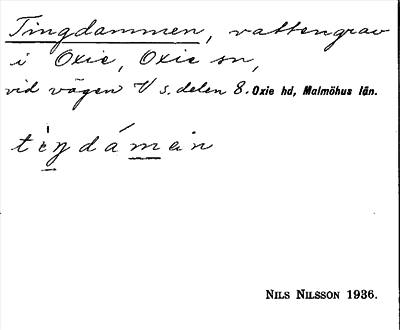 Tingdammen, vattengrav
i Oxie, Oxie sn,
vid vägen V s. delen 8. Oxie hd, Malmöhus län.
NILS NILSSON 1936.